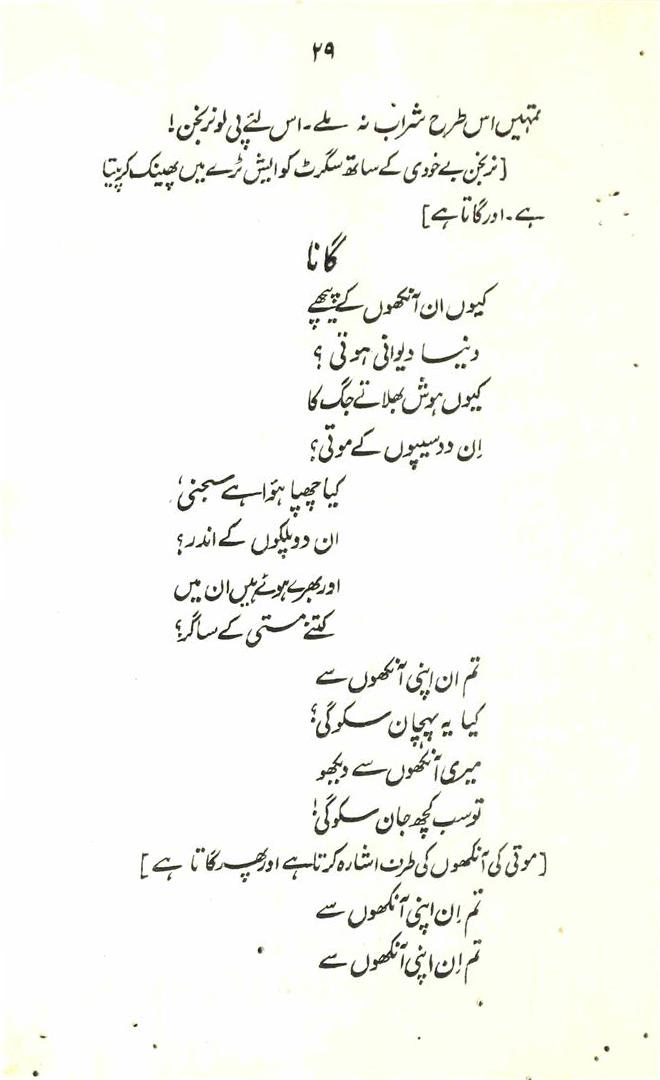 ۲۹
تمہیں اس طرح شراب نہ ملے۔ اس لئے پی لو نرنجن!
[نرنجن بے خودی کے ساتھ سگرٹ کو ایش ٹرے میں پھینک کر پیتا
ہے۔ اور گاتا ہے]
گانا
کیوں ان آنکھوں کے پیچھے
دنیا دیوانی ہوتی ؟
کیوں ہوش بھلاتے جگ کا
اِن دو سیپوں کے موتی؟
کیا چھپا ہؤا ہے سجنی،
ان دو پلکوں کے اندر؟
اور بھرے ہوئے ہیں ان میں
کتنے مستی کے ساگر؟
تم ان اپنی آنکھوں سے
کیا یہ پہچان سکو گی؟
میری آنکھوں سے دیکھو
تو سب کچھ جان سکو گی!
[موتی کی آنکھوں کی طرف اشارہ کرتا ہے اور پھر گاتا ہے]
تم اِن اپنی آنکھوں سے
تم اِن اپنی آنکھوں سے